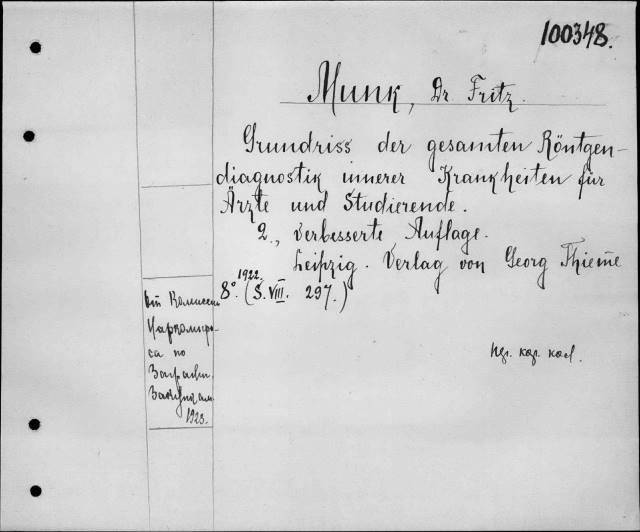 100348.
Munk, Dr. Fritz.
Grundriss der gesamten Röntgen-
diagnostik innerer Krankheiten für
Ärzte und Studierende.
2., verbesserte Auflage.
Leipzig. Verlag von Georg Thieme
1922.
8°. (S. VIII. 297.)
от Комиссии
Наркомпро-
са по
Загран.
Закупкам
1923.